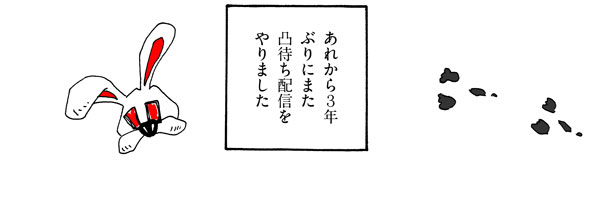 あれから３年
ぶりにまた
凸待ち配信を
やりました